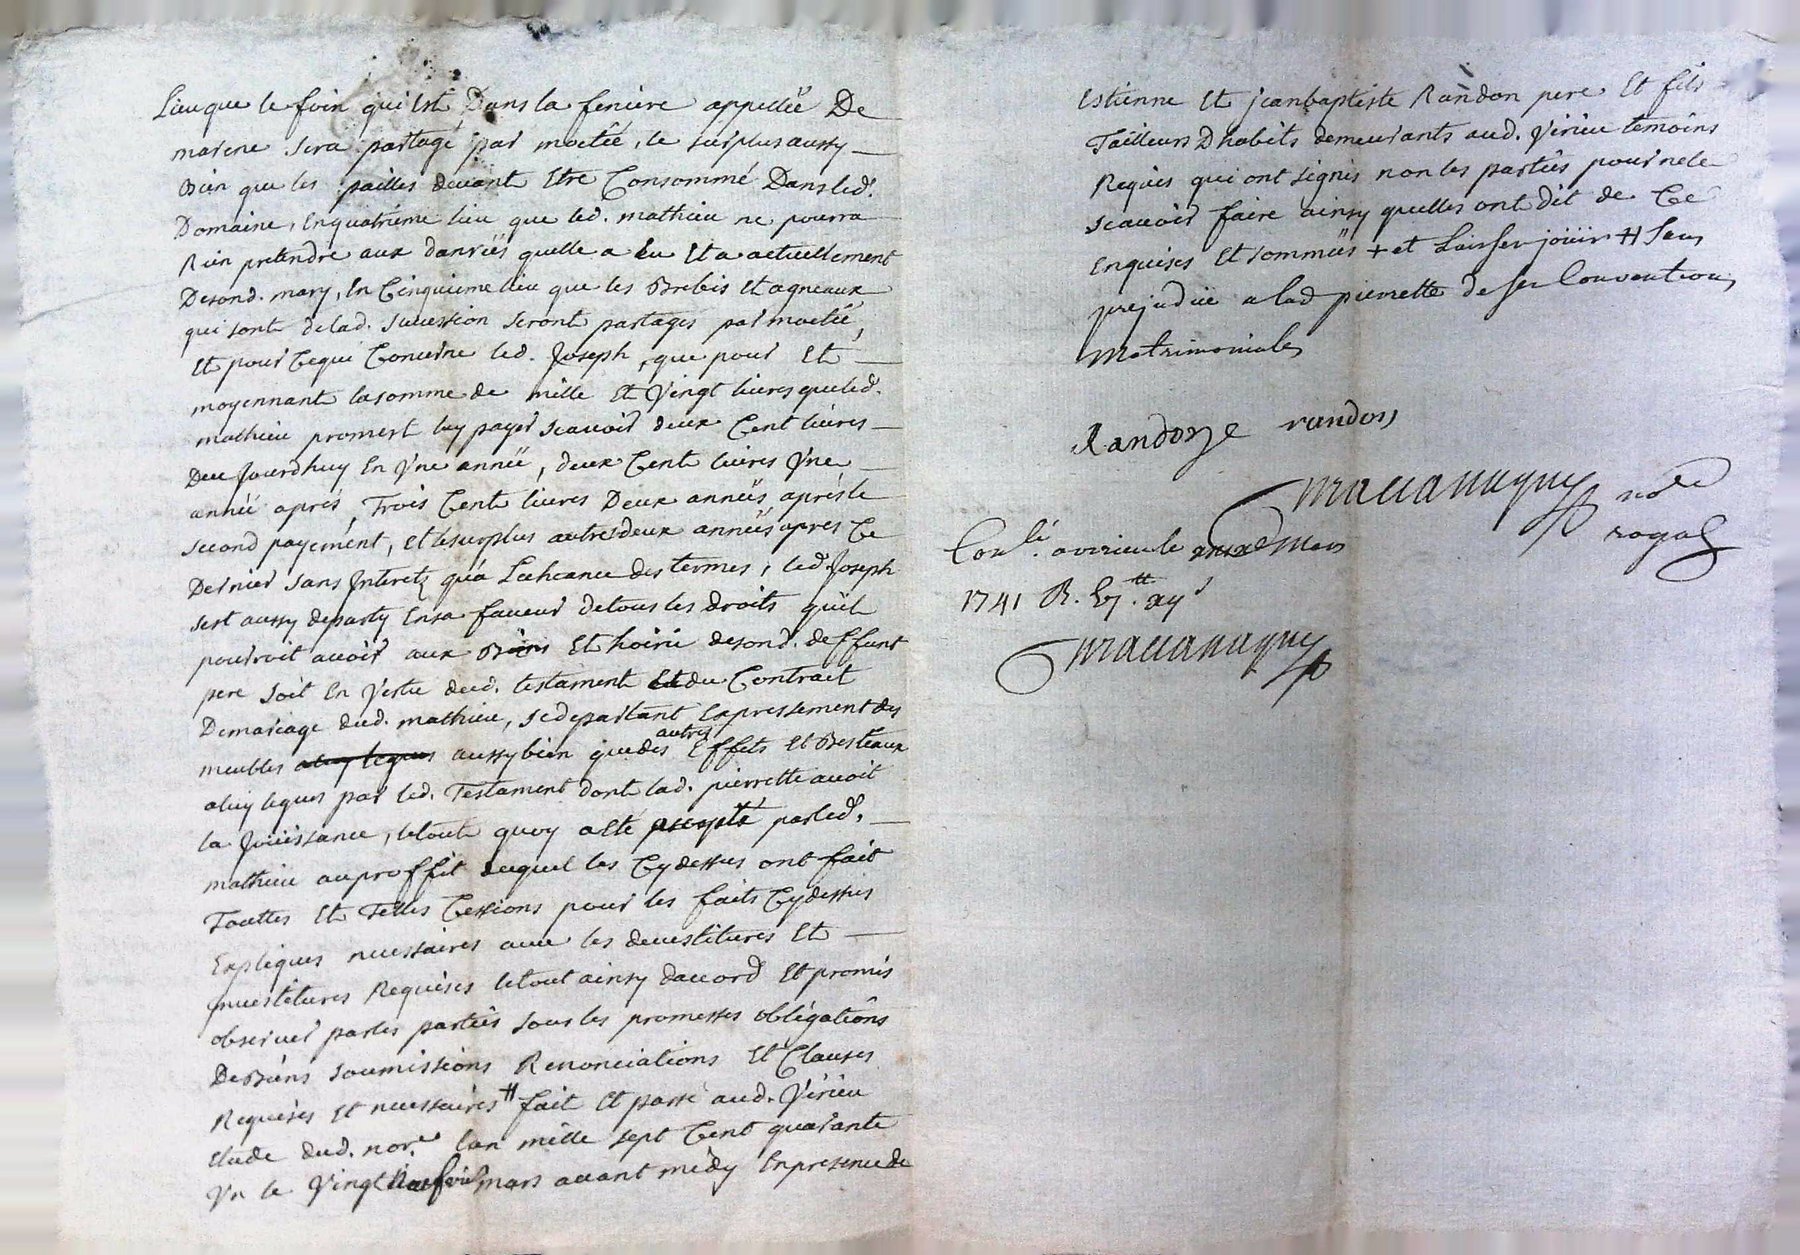 Lieu que le foin qui Est Dans la feniere appellée De
marene sera partagé par moetié, le surplus aussy
Bien que les pailles devant Etre Consommé Dans led.
Domaine, Enquatrieme lieu que led. mathieu ne pourra
Rien pretendre aux danrées quelle a Eu Et a actuellement
Desond. mary, En Cinquieme lieu que les Brebis Et agneaux
qui sont delad. succession seront partages par moetié,
Et pour Cequi Concerne led. Joseph, que pour Et
moyennant la somme de mille Et Vingt livres que led.
mathieu promest luy payer scavoir deux Cent livres
Deu Jourdhuy En Vne année, deux Cent livres Vne
année aprés, Trois Cent livres Deux années aprés le
second payement, et le surplus autres deux années apres Ce
Dernier sans Interetz qua Lecheance des termes, led. Joseph
sest aussy departy Ensa faveur detous les droits quil
pourroit avoir aux Biens Et hoirie desond. deffunt
pere soit En Vertu dud. testament Et du Contrait
Demariage dud. mathieu, se departant Expressement des
meubles aussy bien que des autres Effets Et Bestiaux
a luy legues par led. Testament dont lad. pierrette avoit
la Jouissance, letout quoy a Eté accepté par led.
mathieu au proffit duquel les Cydessus ont fait
Touttes Et Telles Cessions pour les faits Cydessus
Expliques necessaires avec les devestitures Et
investitures Requises letout ainsy daccord Et promis
observer par les parties sous les promesses obligations
De Biens soumissions Renonciations Et Clauses
Requises Et necessaires # fait Et passé aud. Virieu
Etude dud. nore. Lan mille sept Cent quarante
Vn le Vingt mars avant midy En presence de
Estienne Et jean baptiste Randon pere Et fils
Tailleurs Dhabits demeurants aud. Virieu temoins
Requis qui ont signés non les parties pour ne le
scavoir faire ainsy quelles ont dit de Ce
Enquises Et sommées + et Laisser joüir # Sans
prejudice a lad pierrette de ses Conventions
Matrimoniales
Randon randon
nore
royal
Conlé. a virieu le mars
1741 R.